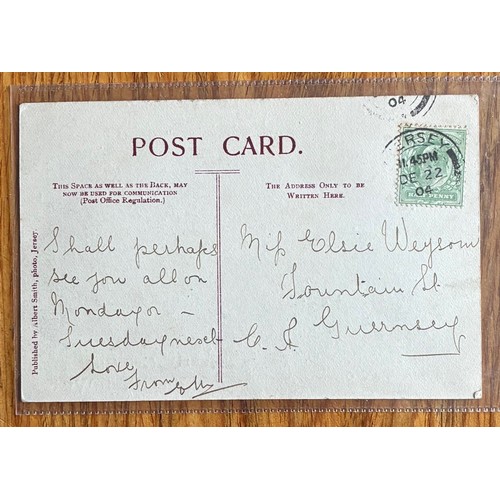 04
POST CARD.
THIS SPACE AS WELL AS THE BACK, MAY
NOW BE USED FOR COMMUNICATION
(Post Office Regulation.)
THE ADDRESS ONLY TO BE
WRITTEN HERE.
RSEY
11.45PM
DE 22
04
PENNY
Shall perhaps
see you all on
Monday or
Tuesday next
Love
From
Miss Elsie
Fountain St
Guernsey
Published by Albert Smith, photo, Jersey